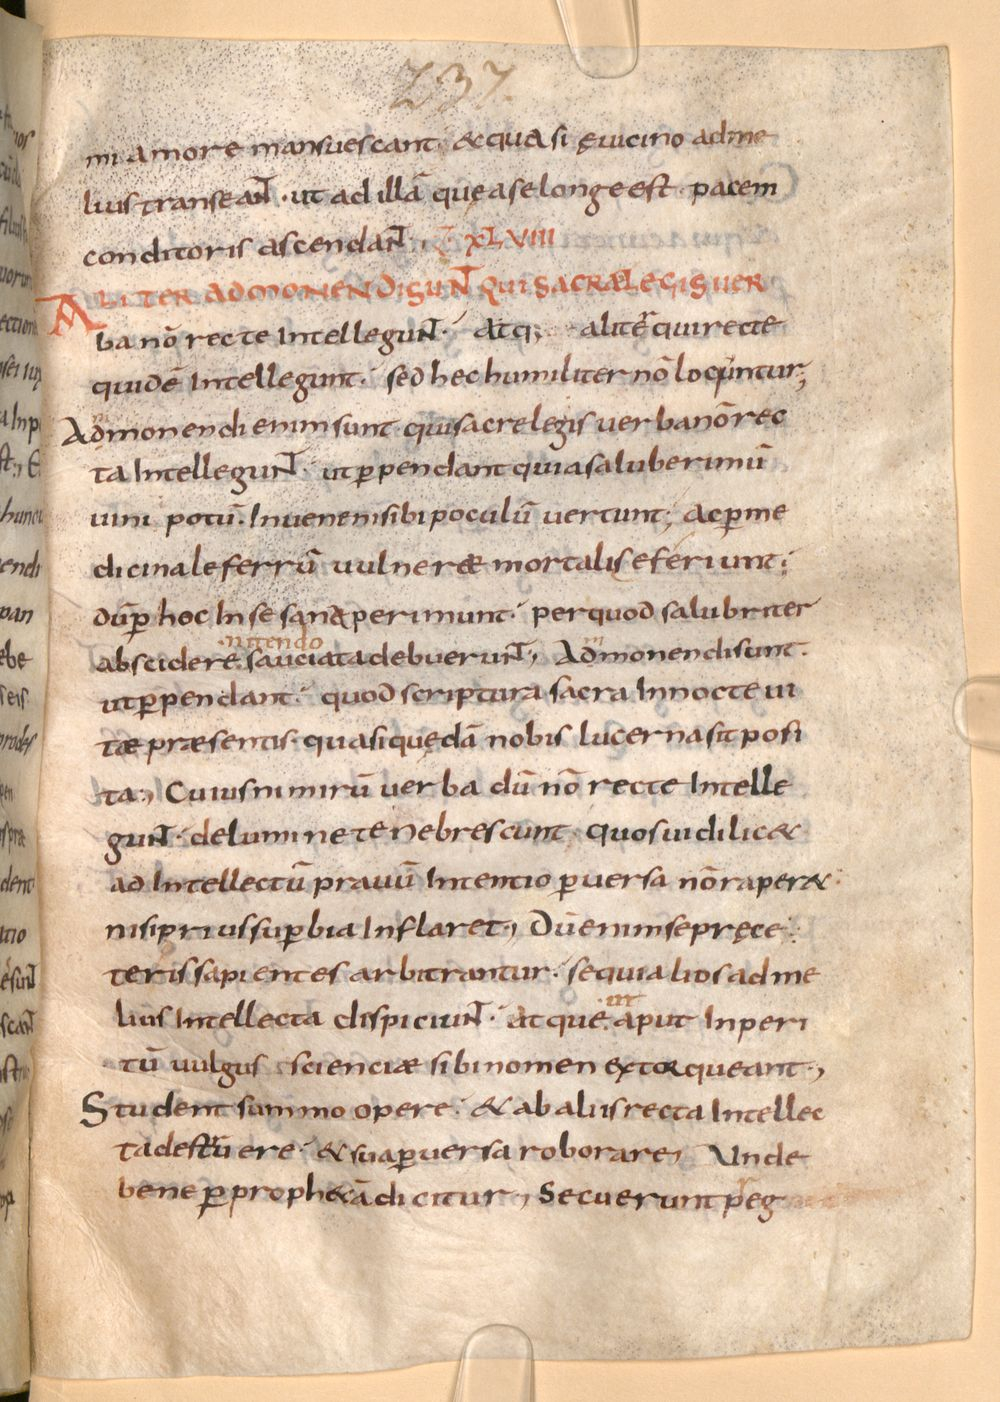 237.
mi amore mansuescant· & quasi ę uicino adme
lius transeaNT· ut ad illā quę a se longe est pacem
conditoris ascendaNT·, XLVIII
ALITER ADMONENDI SUNT QUI SACRA LEGIS VER
ba nō recte Intellegunt· Atq; aliter qui recte
quidē Intellegunt· sed hec humiliter nō locuntur;
Admonendi enim sunt qui sacre legis uerba nō rec
ta Intellegunt· ut ꝑpendant quia saluberrimū
uini potū· In ueneni sibi poculū uertunt; ac ꝑ me
dicinale ferrū uulnere mortali se feriunt·
dū ꝑ hoc In se sana perimunt· per quod salubriter
·nitendo
abscidere sauciata debuerunt, Admonendi sunt·
ut ꝑpendant· quod scriptura sacra In nocte ui
tæ præsentis· quasi quędā nobis lucerna sit posi
ta·, Cuius nimirū uerba dū nō recte Intelle
gunt· de lumine tenebrescunt quos uidilic&
ad Intellectū prauū Intentio ꝑuersa nō raper&·
nisi prius suꝑbia Inflaret·, Dū enim se pręce
teris sapientes arbitrantur· sequi alios ad me
ut
lius Intellecta dispiciunt· atque· aput Inperi
tū uulgus scienciæ sibi nomen extorqueant·,
Student summo opere· & ab aliis recta Intellec
ta destruere· & sua ꝑuersa roborare, Unde
bene ꝑ proph&ā dicitur, Secuerunt p̄eg